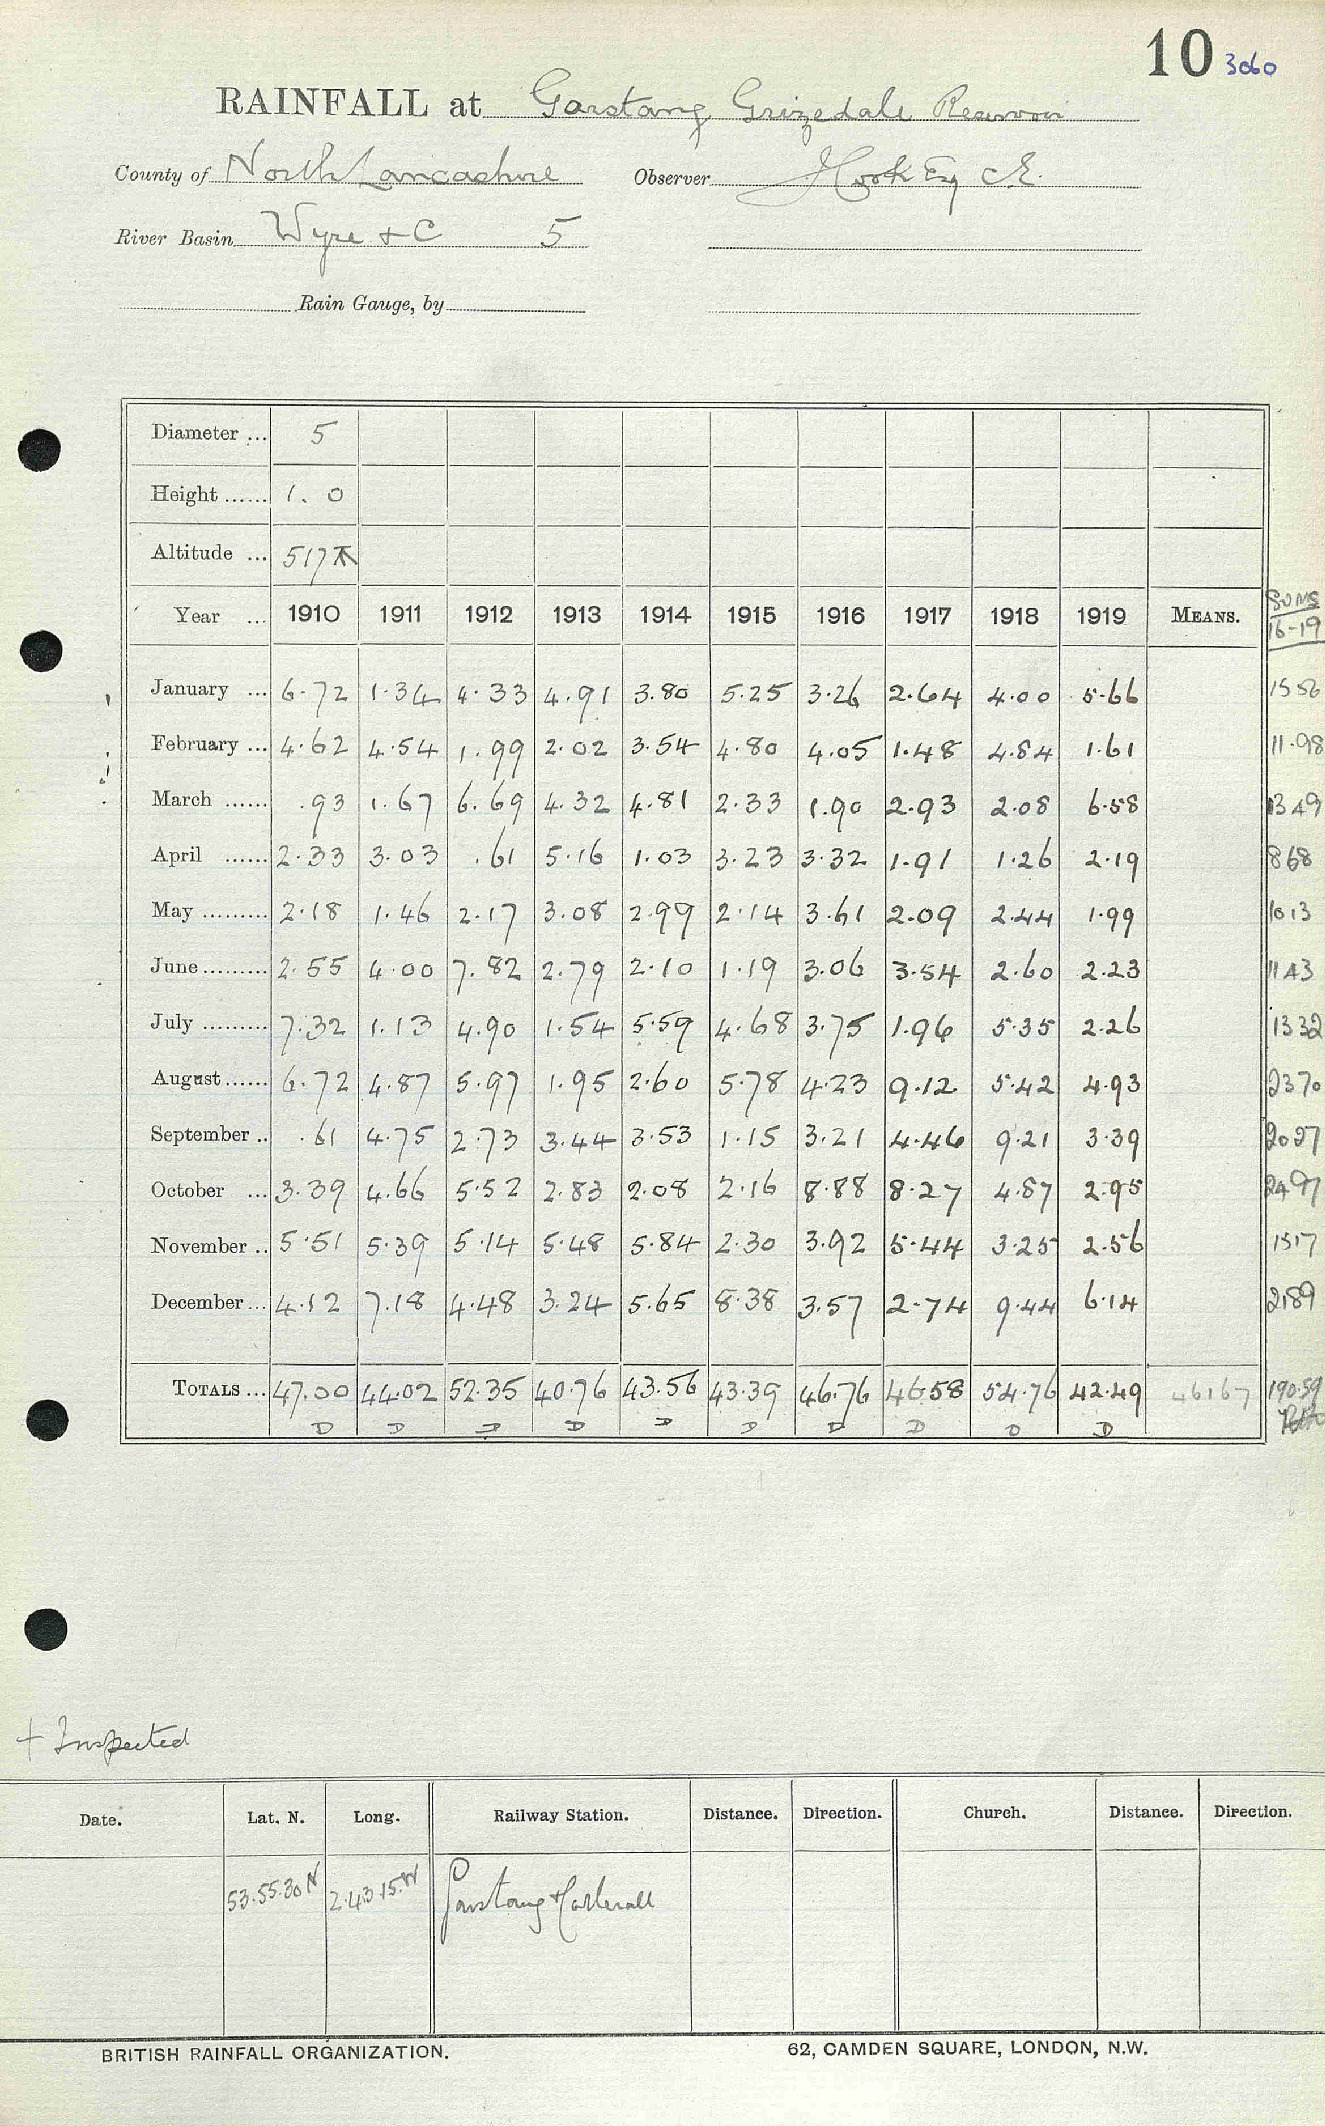 10 3060
RAINFALL at Garstang Grizedale Reservoir
County of North Lancashire Observer Hook Esq C.E.
River Basin Wyre & C 5
Rain Gauge, by
Diameter ... 5
Height ...... 1. 0
Altitude ... 517
Year ... 1910 1911 1912 1913 1914 1915 1916 1917 1918 1919 MEANS. SUMS 16-19
January ... 6.72 1.34 4.33 4.91 3.80 5.25 3.26 2.64 4.00 5.66 1556
February ... 4.62 4.54 1.99 2.02 3.54 4.80 4.05 1.48 4.84 1.61 11.98
March ...... .93 1.67 6.69 4.32 4.81 2.33 1.90 2.93 2.08 6.58 1349
April ...... 2.33 3.03 .61 5.16 1.03 3.23 3.32 1.91 1.26 2.19 868
May ......... 2.18 1.46 2.17 3.08 2.99 2.14 3.61 2.09 2.44 1.99 1013
June ......... 2.55 4.00 7.82 2.79 2.10 1.19 3.06 3.54 2.60 2.23 1143
July ......... 7.32 1.13 4.90 1.54 5.59 4.68 3.75 1.96 5.35 2.26 1332
August ...... 6.72 4.87 5.97 1.95 2.60 5.78 4.23 9.12 5.42 4.93 2370
September .. .61 4.75 2.73 3.44 3.53 1.15 3.21 4.46 9.21 3.39 2027
October ... 3.39 4.66 5.52 2.83 2.08 2.16 8.88 8.27 4.87 2.95 2497
November .. 5.51 5.39 5.14 5.48 5.84 2.30 3.92 5.44 3.25 2.56 1517
December ... 4.12 7.18 4.48 3.24 5.65 8.38 3.57 2.74 9.44 6.14 2189
TOTALS ... 47.00 44.02 52.35 40.76 43.56 43.39 46.76 46.58 54.76 42.49 46167 190.59
D D D D D D D D D D
+ Inspected
Date. Lat. N. Long. Railway Station. Distance. Direction. Church. Distance. Direction.
53.55.30 N 2.43.15.W Garstang & Catterall
BRITISH RAINFALL ORGANIZATION. 62, CAMDEN SQUARE, LONDON, N.W.